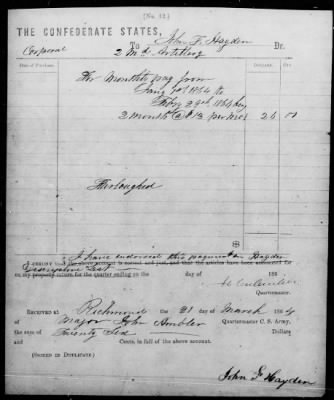 [No. 12.]
THE CONFEDERATE STATES,
To John F. Hayden Dr.
Corporal 2 Md Artillery
Date of Purchase. Dollars. Cts.
For monthly pay from
Jany 1st 1864 to
Feby 29th 1864 being
2 months @ 13 per mo 26 00
Furloughed
I have endorsed this payment on Hayden
Descriptive List
I CERTIFY that the above account is correct and just, and that the articles have been accounted for
on my property return for the quarter ending on the day of 186
Quartermaster.
RECEIVED AT Richmond the 21 day of March 1864
of Major John Ambler Quartermaster C. S. Army,
the sum of Twenty Six Dollars
and Cents, in full of the above account.
(SIGNED IN DUPLICATE.)
John F. Hayden